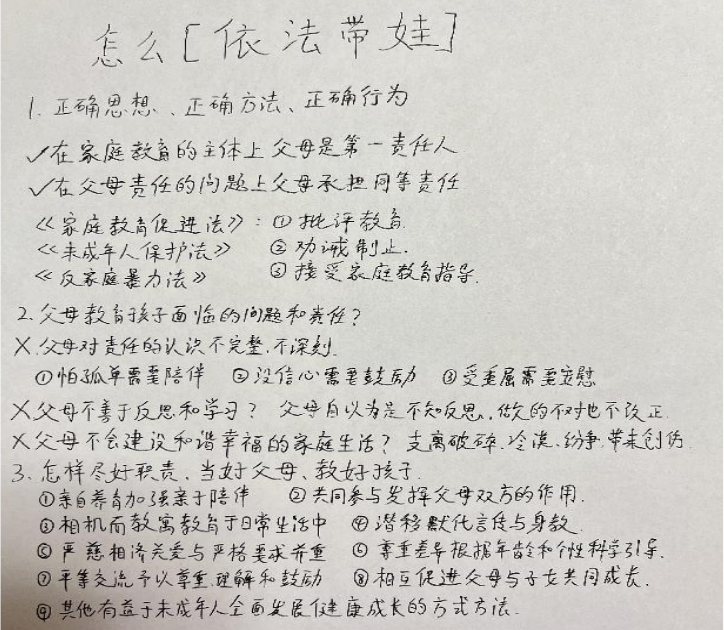 怎么[依法带娃]
1. 正确思想、正确方法、正确行为
✓在家庭教育的主体上父母是第一责任人
✓在父母责任的问题上父母承担同等责任
《家庭教育促进法》: ①批评教育.
《未成年人保护法》 ②劝诫制止.
《反家庭暴力法》 ③接受家庭教育指导.
2. 父母教育孩子面临的问题和责任?
X.父母对责任的认识不完整,不深刻.
①怕孤单需要陪伴 ②没信心需要鼓励 ③受委屈需要安慰
X父母不善于反思和学习? 父母自以为是不知反思,做的不对也不改正.
X父母不会建设和谐幸福的家庭生活? 支离破碎、冷漠、纷争,带来创伤
3、怎样尽好职责、当好父母、教好孩子.
①亲自养育加强亲子陪伴 ②共同参与发挥父母双方的作用.
③相机而教寓教育于日常生活中 ④潜移默化言传与身教.
⑤严慈相济关爱与严格要求并重 ⑥尊重差异根据年龄和个性科学引导.
⑦平等交流予以尊重、理解和鼓励 ⑧相互促进父母与子女共同成长.
⑨其他有益于未成年人全面发展健康成长的方式方法.